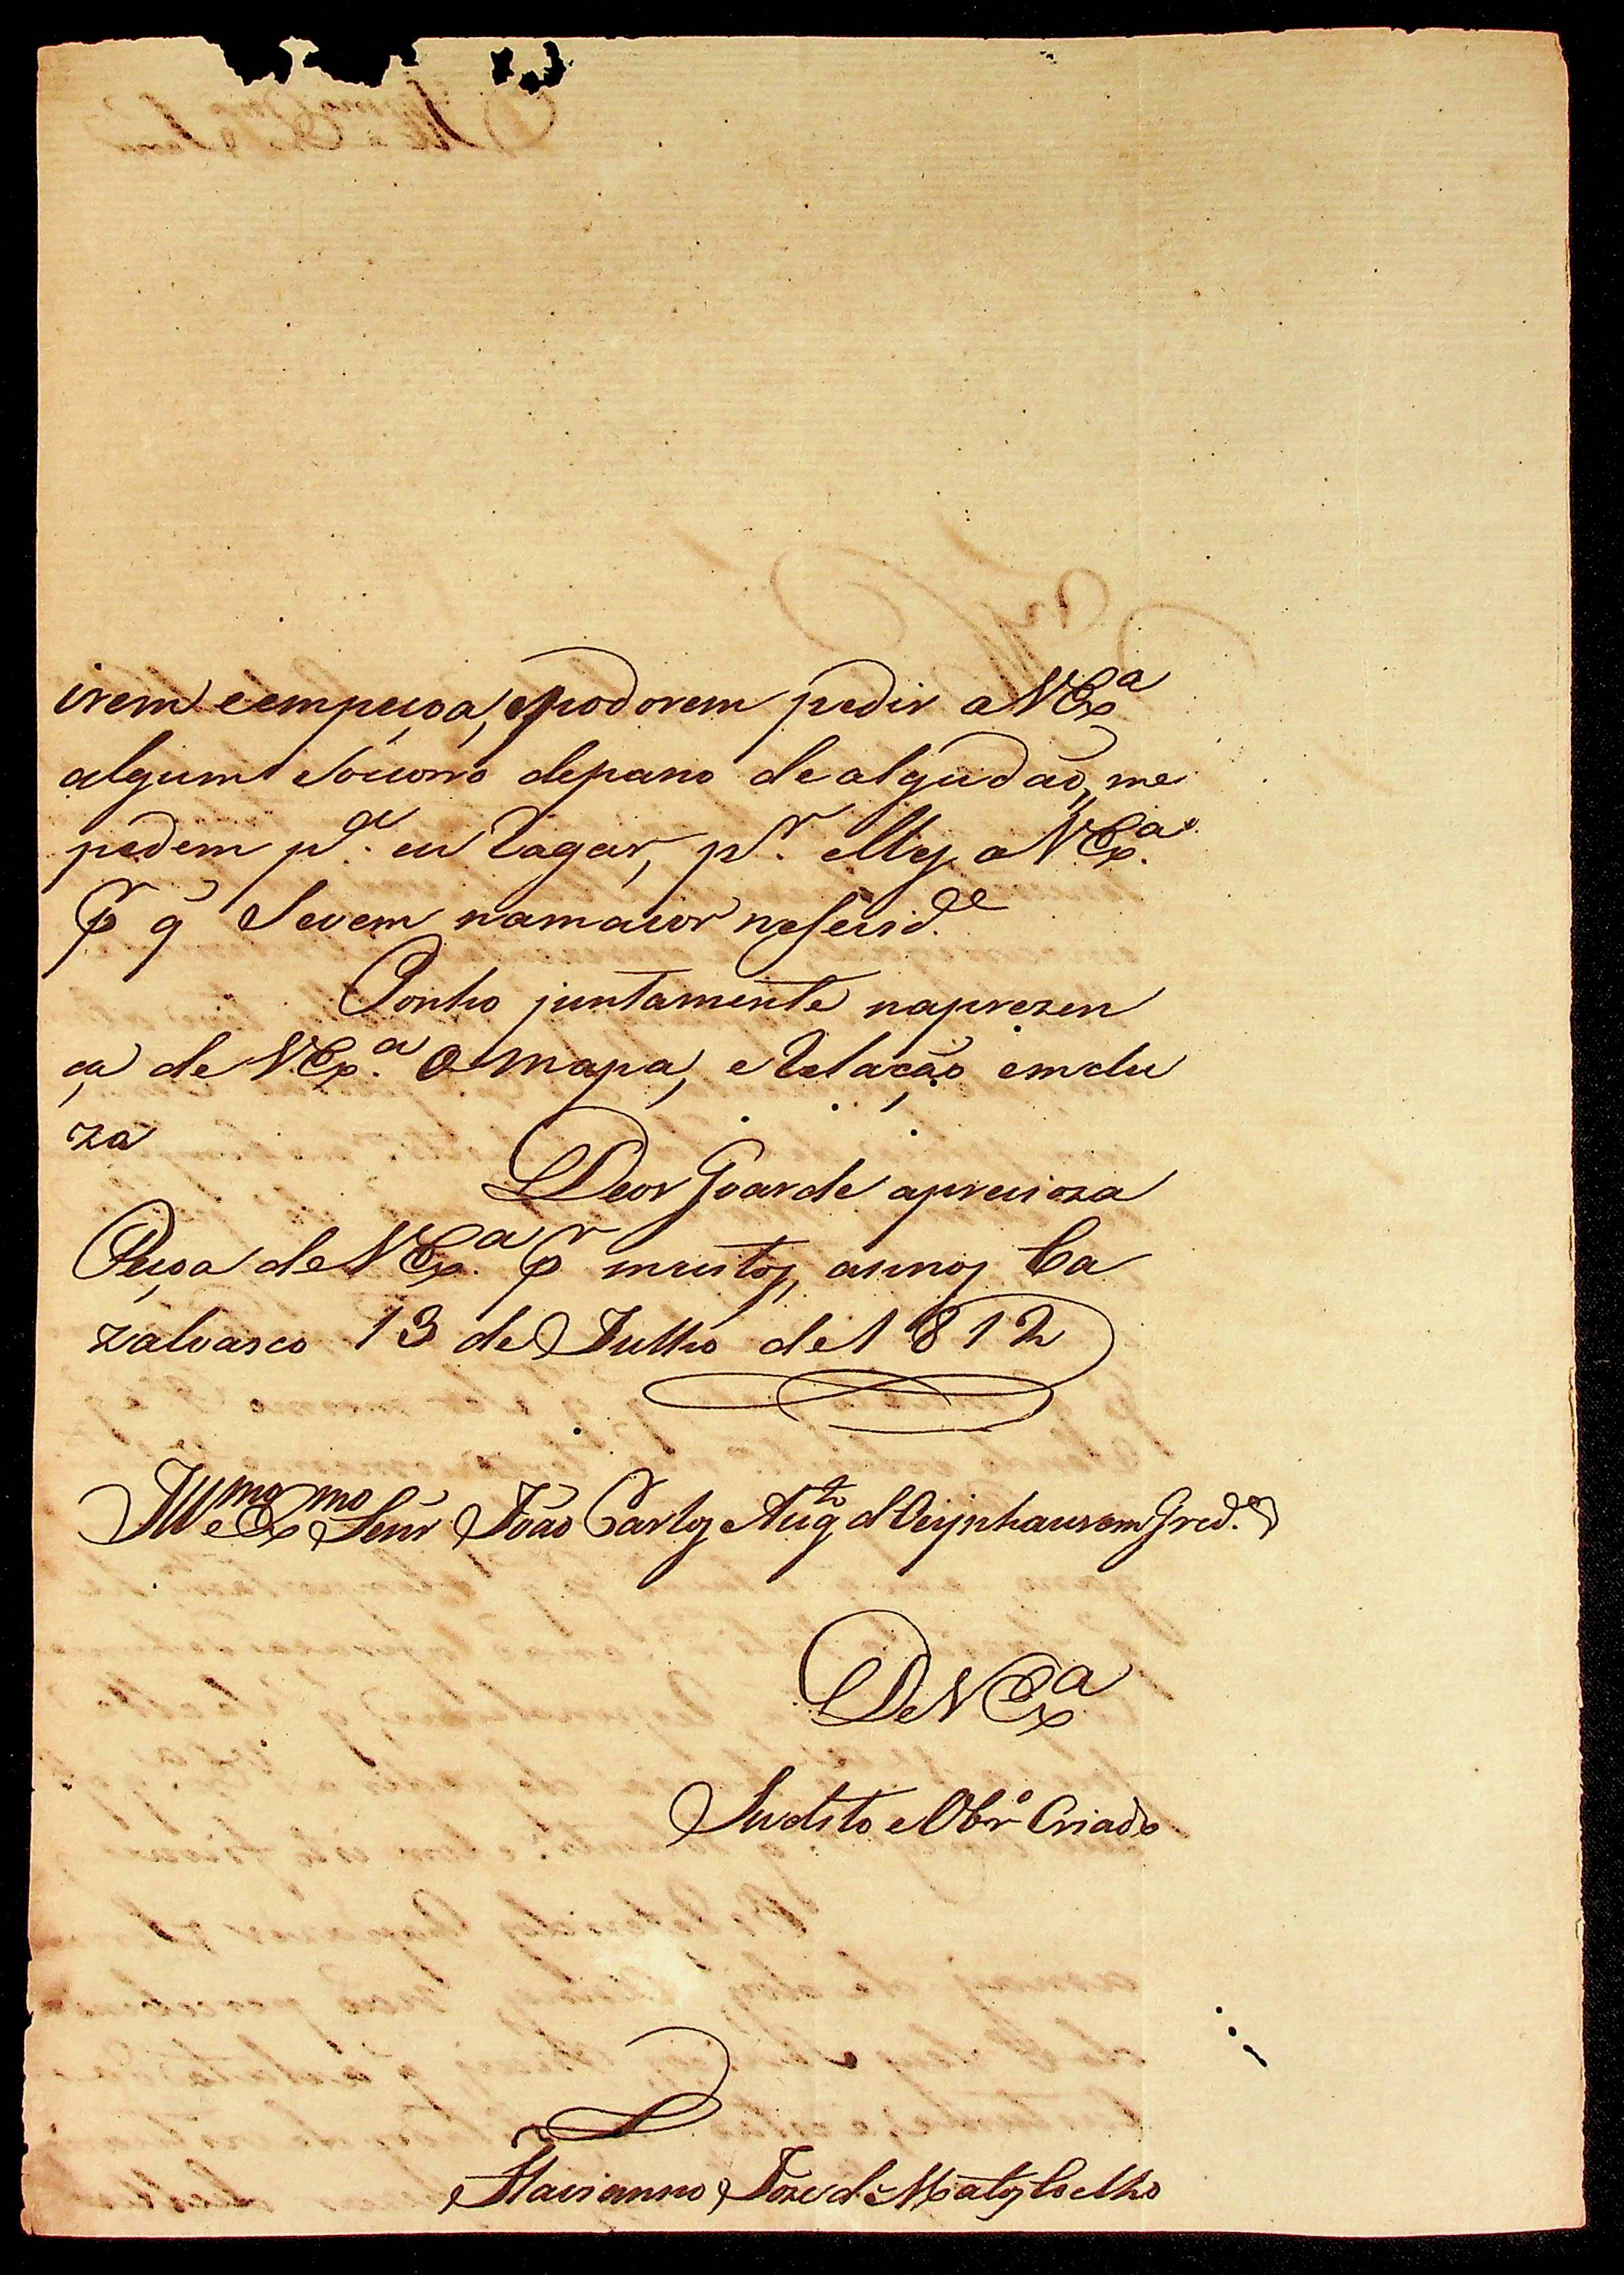 irem eempeçoa, epodorem pedir a VExª
algum Socorro depano de algudão, me
pedem pª. eu Rogar, pr. elles a VExª.
pr q̃ Se vem namaior neseçidᵉ.
Ponho juntamente naprezen
ça de VExª. O Mapa, e Relação emclu
za
Deos Goarde aprecioza
Peçoa de VExª. pr muitos annos Ca
zalvasco 13 de Julho de 1812
Illmo e Exmo Senr João Carlos Augto d Oeijnhausem Gred.
De VExª
Sudito e Obrº Criado
Flavianno Joze de Matos Coelho